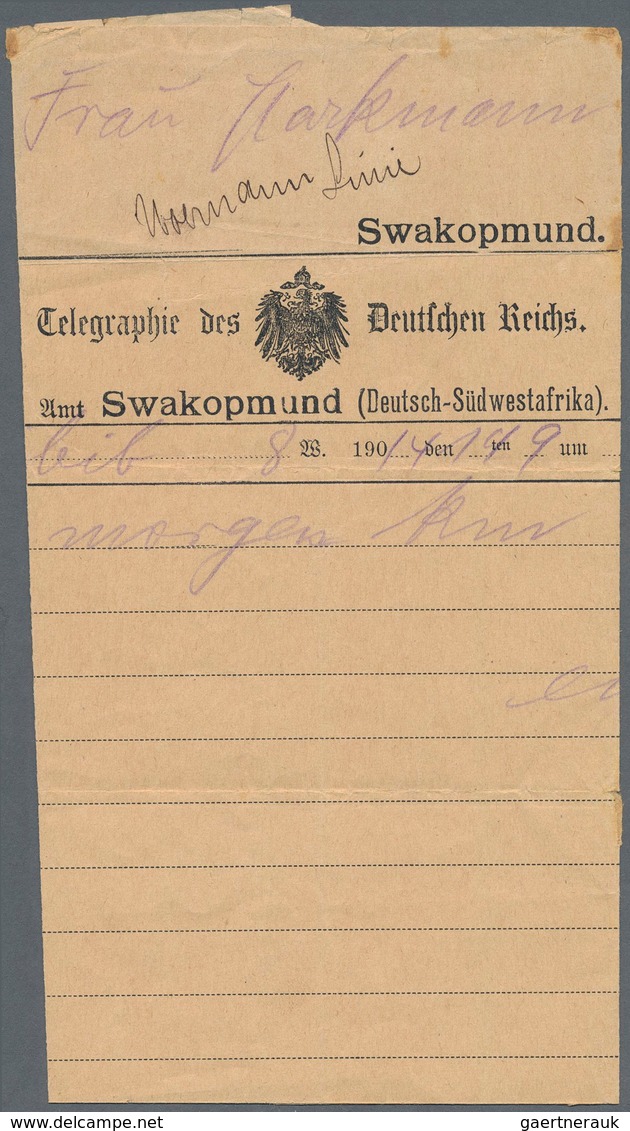 Frau Harkmann
Woermann Linie
Swakopmund.
Telegraphie des Deutschen Reichs.
Amt Swakopmund (Deutsch-Südwestafrika).
8 W. 190 14 den ten 9 um
morgen
gaertnerauk